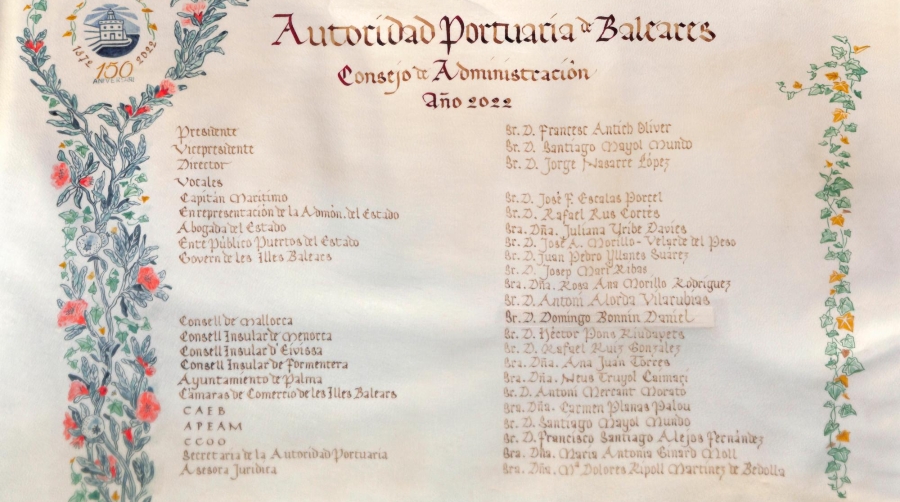 1872 2022
150
ANIVERSARI
Autoridad Portuaria de Baleares
Consejo de Administración
Año 2022
Presidente Sr. D. Francesc Antich Oliver
Vicepresidente Sr. D. Santiago Mayol Mundo
Director Sr. D. Jorge Nasarre López
Vocales
Capitán Marítimo Sr. D. José F. Escalas Porcel
En representación de la Admón. del Estado Sr. D. Rafael Rus Cortés
Abogada del Estado Sra. Dña. Juliana Uribe Davies
Ente Público Puertos del Estado Sr. D. José A. Morillo-Velarde del Peso
Govern de les Illes Balears Sr. D. Juan Pedro Yllanes Suárez
Sr. D. Josep Marí Ribas
Sra. Dña. Rosa Ana Morillo Rodríguez
Sr. D. Antoni Alorda Vilarubias
Sr. D. Domingo Bonnin Daniel
Consell de Mallorca
Consell Insular de Menorca Sr. D. Héctor Pons Riudavets
Consell Insular d'Eivissa Sr. D. Rafael Ruiz González
Consell Insular de Formentera Sra. Dña. Ana Juan Torres
Ayuntamiento de Palma Sra. Dña. Neus Truyol Caimari
Cámaras de Comercio de les Illes Balears Sr. D. Antoni Mercant Morato
CAEB Sra. Dña. Carmen Planas Palou
APEAM Sr. D. Santiago Mayol Mundo
CCOO Sr. D. Francisco Santiago Alejos Fernández
Secretaria de la Autoridad Portuaria Sra. Dña. Maria Antonia Ginard Moll
Asesora Jurídica Sra. Dña. Mª Dolores Ripoll Martínez de Bedoya